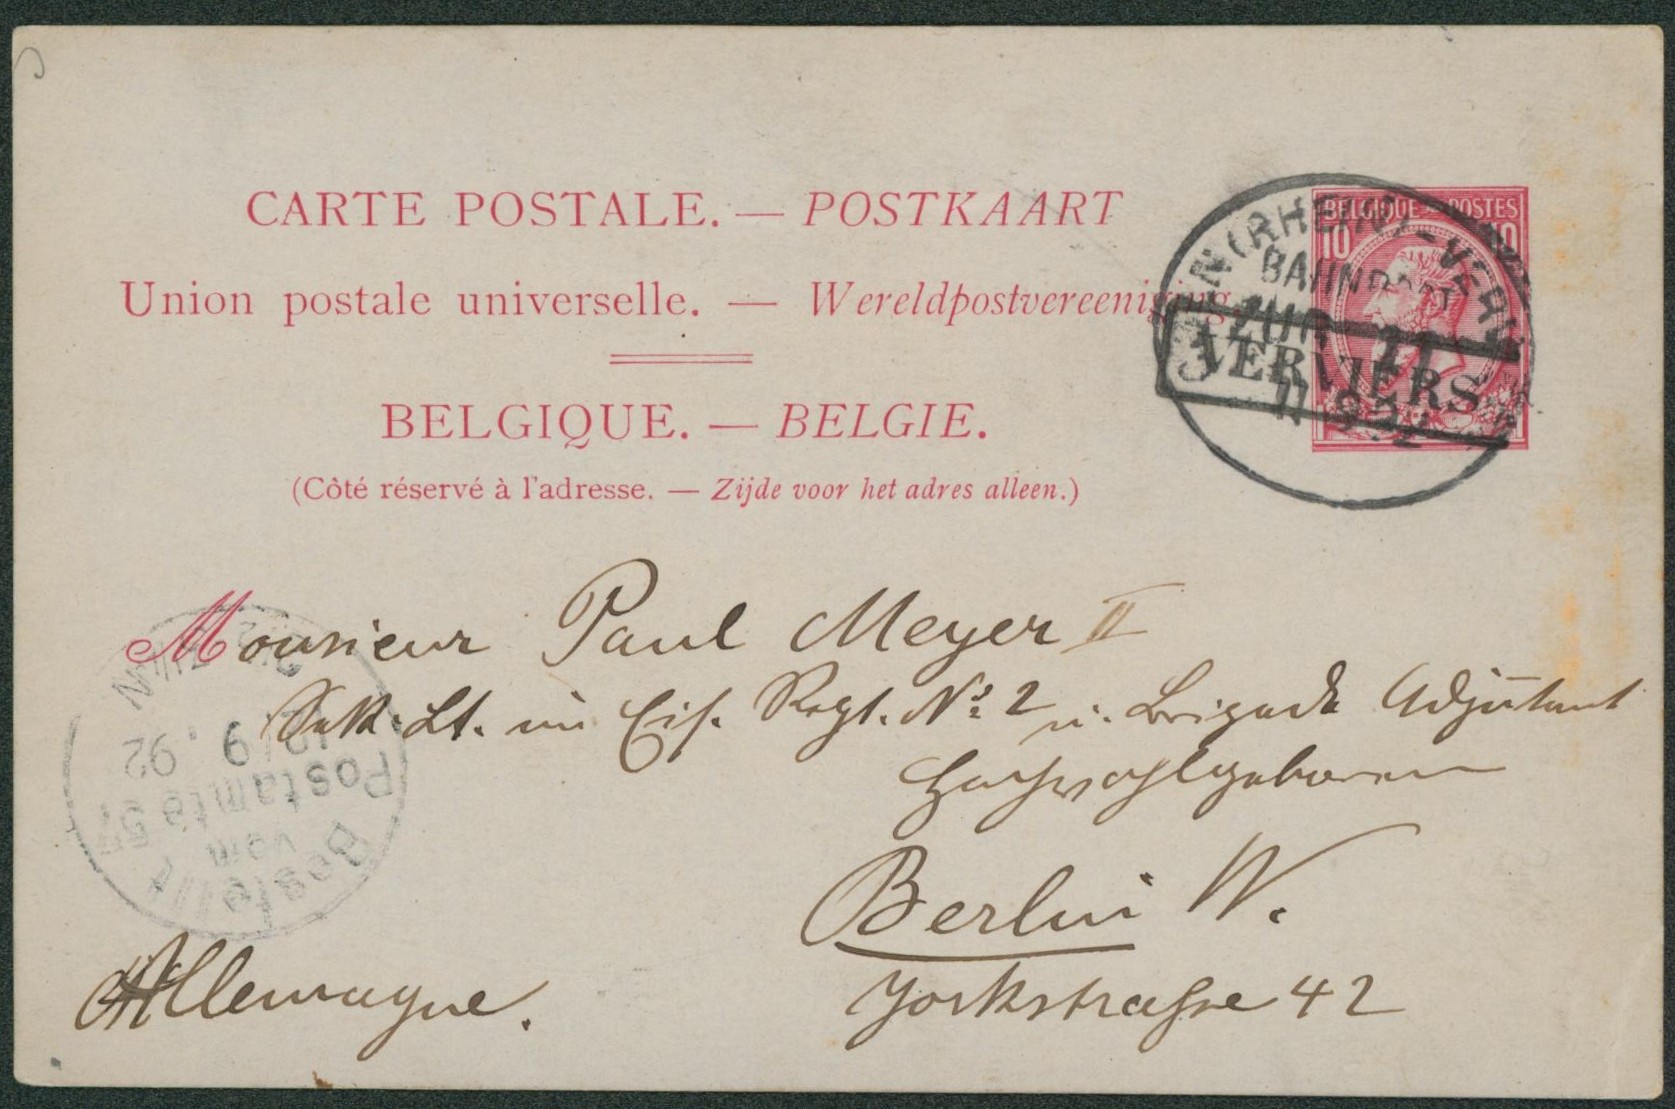 CARTE POSTALE. — POSTKAART
Union postale universelle. — Wereldpostvereeniging.
BELGIQUE. — BELGIE.
(Côté réservé à l'adresse. — Zijde voor het adres alleen.)
BELGIQUE POSTES
10 10
CÖLN (RHEIN) - VERVIERS
BAHNPOST
ZUG 11
11 9 92
VERVIERS
Monsieur Paul Meyer II
Sek. Lt. im Eis. Regt. No. 2 u. Brigade Adjutant
Hochwohlgeboren
Berlin W.
Yorkstrasse 42
Allemagne.
Bestellt
vom
Postamte 57
12/9.92